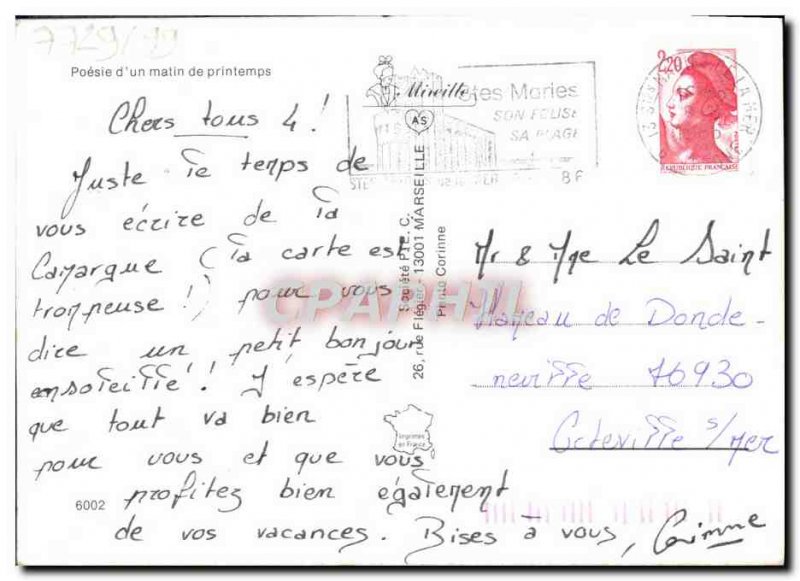 7729/19
Poésie d'un matin de printemps
Chers tous 4 !
Juste le temps de
vous écrire de la
Camargue (la carte est
trompeuse !) pour vous
dire un petit bonjour
ensoleillé ! J'espère
que tout va bien
pour vous et que vous
profitez bien également
de vos vacances. Bises à vous, Corinne
6002
Mireille
AS
Stes Maries
SON EGLISE
SA PLAGE
Société P.E.C.
26, rue Flégier - 13001 MARSEILLE
Photo Corinne
Imprimé
en France
2,20
REPUBLIQUE FRANÇAISE
LA MER
Mr & Mme Le Saint
Hameau de Donde-
neville 76930
Octeville s/mer
CPAPHIL